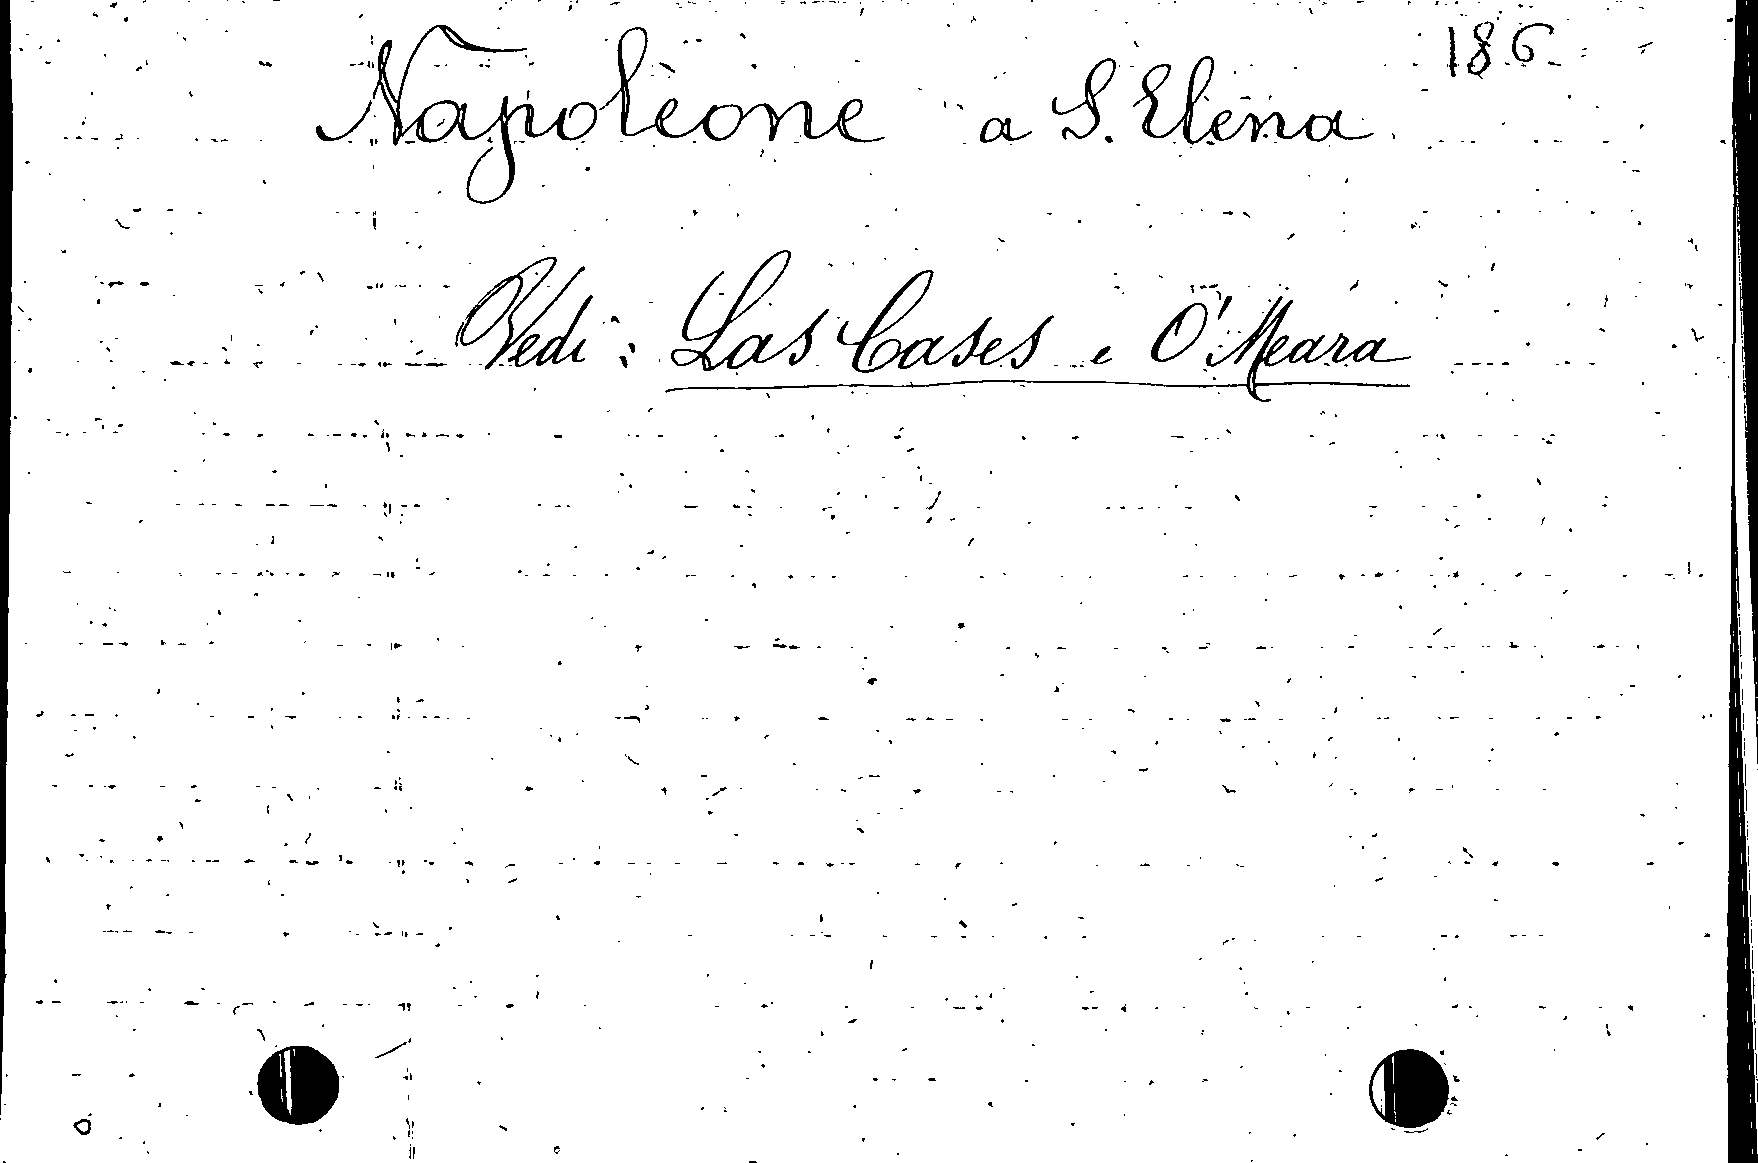 186
Napoleone a S. Elena
Vedi: Las Cases e O'Meara